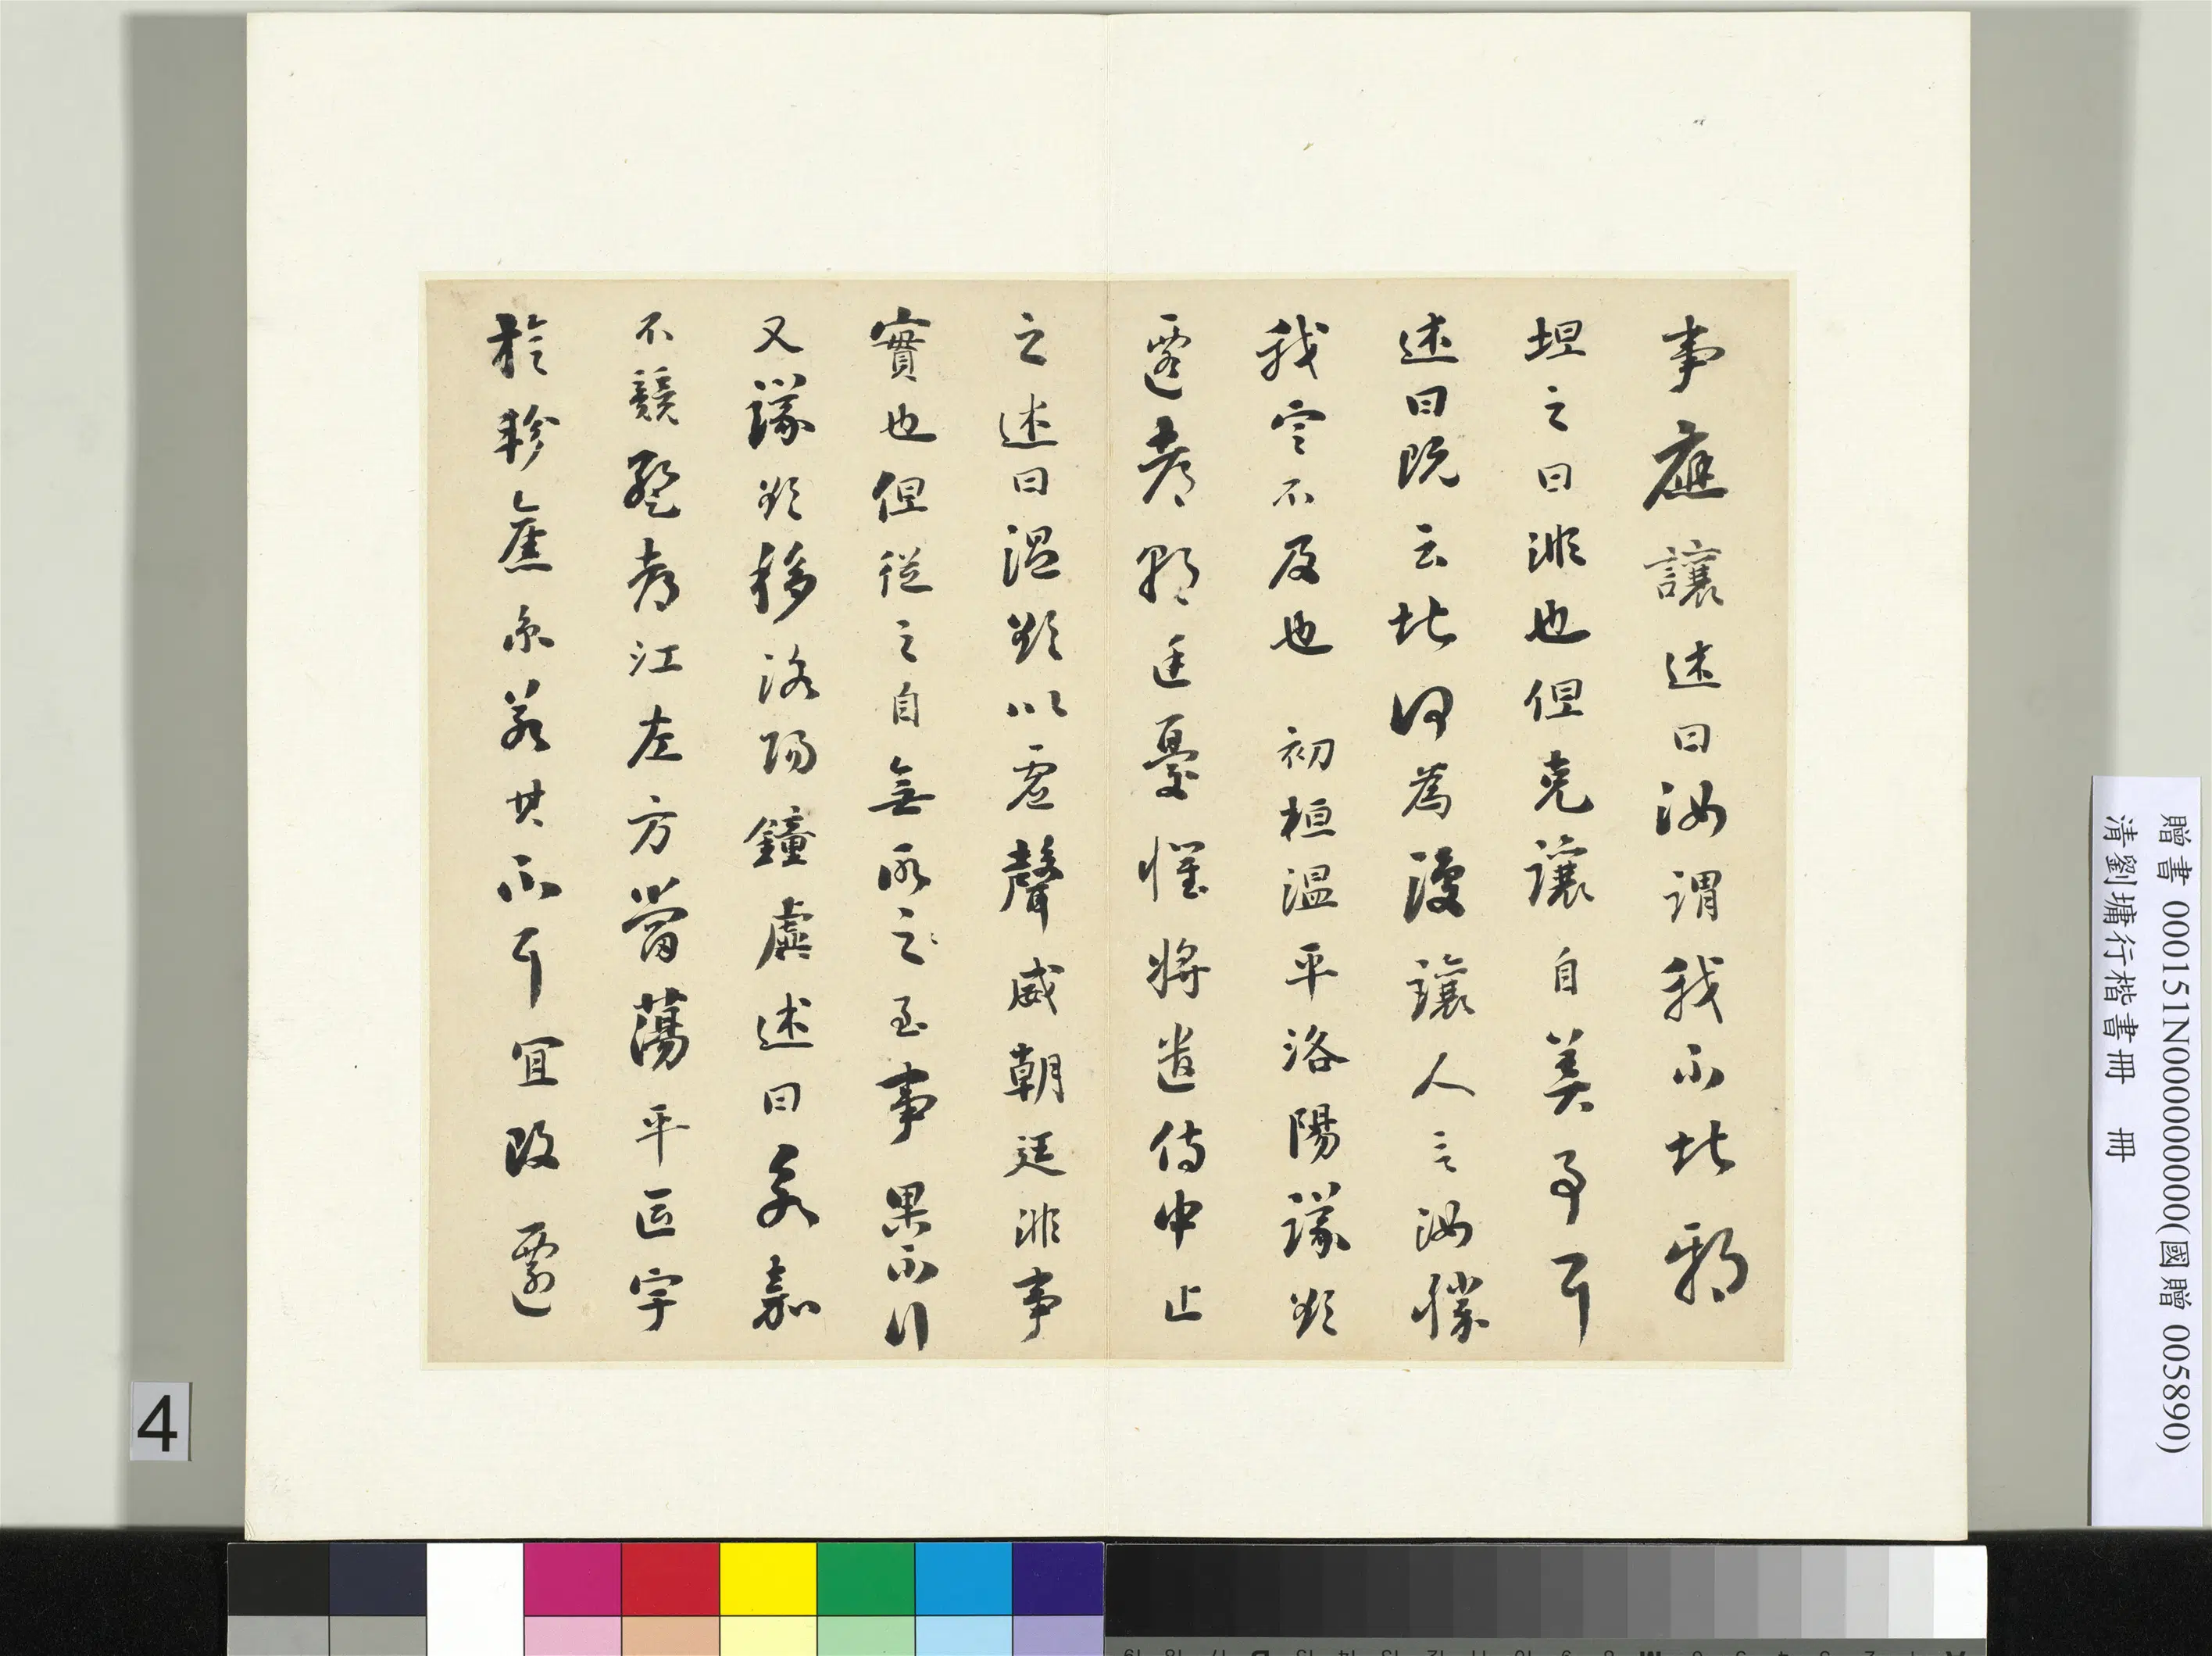 事應讓述曰汝謂我不堪邪
坦之曰非也但克讓自美事耳
述曰既云堪何為復讓人言汝勝
我定不及也 初桓溫平洛陽議欲
遷都朝廷憂懼將遣侍中止
之述曰溫欲以虛聲威朝廷非事
實也但從之自無所之至事果不行
又議欲移洛陽鐘虡述曰永嘉
不競暫都江左方當蕩平區宇
旋軫舊京若其不耳宜改遷
贈書 000151N000000000(國贈 005890)
清劉墉行楷書冊 冊
4